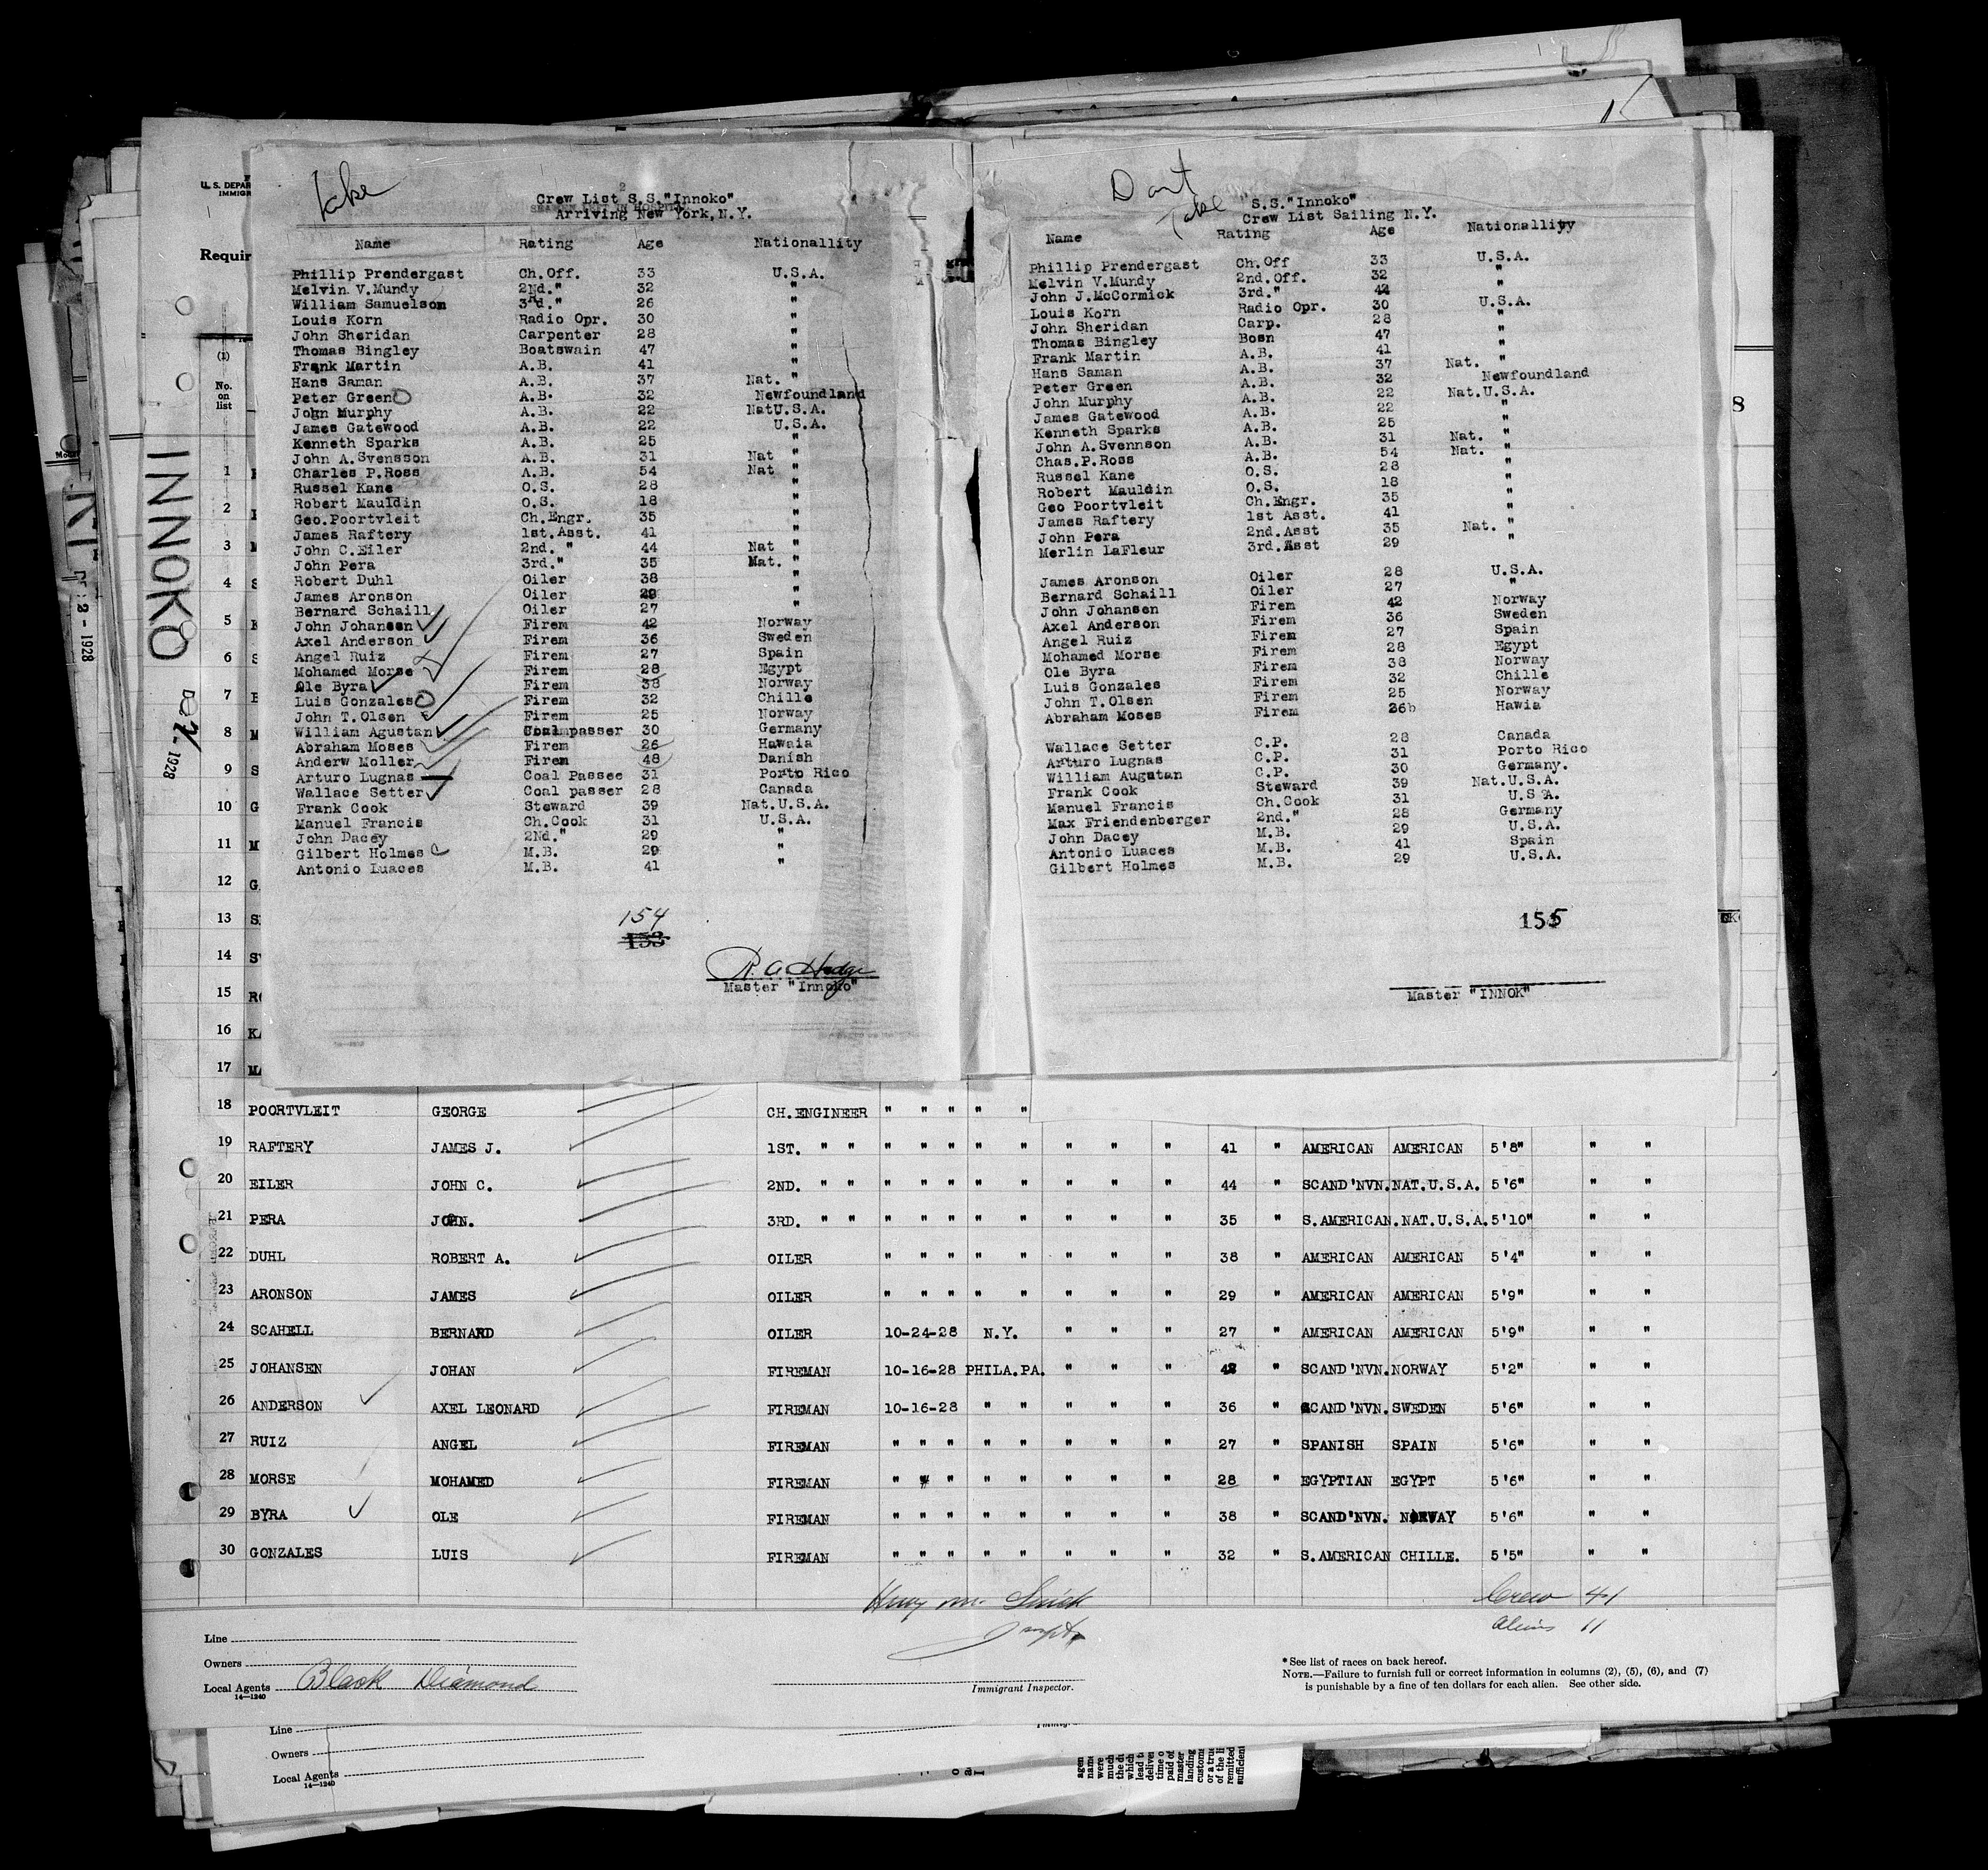 Take
Crew List S.S."Innoko"
Arriving New York, N.Y.
Name Rating Age Nationallity
Phillip Prendergast Ch.Off. 33 U.S.A.
Melvin V.Mundy 2Nd." 32 "
William Samuelsom 3rd." 26 "
Louis Korn Radio Opr. 30 "
John Sheridan Carpenter 28 "
Thomas Bingley Boatswain 47 "
Frank Martin A.B. 41 "
Hans Saman A.B. 37 Nat. "
Peter Green A.B. 32 Newfoundland
John Murphy A.B. 22 NatU.S.A.
James Gatewood A.B. 22 U.S.A.
Kenneth Sparks A.B. 25 "
John A.Svensson A.B. 31 Nat "
Charles P.Ross A.B. 54 Nat "
Russel Kane O.S. 28 "
Robert Mauldin O.S. 18 "
Geo.Poortvleit Ch.Engr. 35 "
James Raftery 1st.Asst. 41 "
John C.Eiler 2nd. " 44 Nat "
John Pera 3rd." 35 Nat. "
Robert Duhl Oiler 38 "
James Aronson Oiler 29 "
Bernard Schaill Oiler 27 "
John Johansen Firem 42 Norway
Axel Anderson Firem 36 Sweden
Angel Ruiz Firem 27 Spain
Mohamed Morse Firem 28 Egypt
Ole Byra Firem 38 Norway
Luis Gonzales Firem 32 Chille
John T.Olsen Firem 25 Norway
William Agustan Coalmpasser 30 Germany
Abraham Moses Firem 26 Hawaia
Anderw Moller Firem 48 Danish
Arturo Lugnas Coal Passee 31 Porto Rico
Wallace Setter Coal passer 28 Canada
Frank Cook Steward 39 Nat.U.S.A.
Manuel Francis Ch.Cook 31 U.S.A.
John Dacey 2Nd." 29 "
Gilbert Holmes M.B. 29 "
Antonio Luaces M.B. 41 "
154
153
R. A. Hodge
Master "Innoko"
Dont
Take
S.S."Innoko"
Crew List Sailing N.Y.
Name Rating Age Nationallity
Phillip Prendergast Ch.Off 33 U.S.A.
Melvin V.Mundy 2nd.Off. 32 "
John J.McCormick 3rd." 42 "
Louis Korn Radio Opr. 30 U.S.A.
John Sheridan Carp. 28 "
Thomas Bingley Bosn 47 "
Frank Martin A.B. 41 "
Hans Saman A.B. 37 Nat. "
Peter Green A.B. 32 Newfoundland
John Murphy A.B. 22 Nat.U.S.A.
James Gatewood A.B. 22 "
Kenneth Sparks A.B. 25 "
John A.Svennson A.B. 31 Nat. "
Chas.P.Ross A.B. 54 Nat. "
Russel Kane O.S. 28 "
Robert Mauldin O.S. 18 "
Geo Poortvleit Ch.Engr. 35 "
James Raftery 1st Asst. 41 "
John Pera 2nd.Asst 35 Nat. "
Merlin LaFleur 3rd.Asst 29 "
James Aronson Oiler 28 U.S.A.
Bernard Schaill Oiler 27 "
John Johansen Firem 42 Norway
Axel Anderson Firem 36 Sweden
Angel Ruiz Firem 27 Spain
Mohamed Morse Firem 28 Egypt
Ole Byra Firem 38 Norway
Luis Gonzales Firem 32 Chille
John T.Olsen Firem 25 Norway
Abraham Moses Firem 26b Hawia
Wallace Setter C.P. 28 Canada
Arturo Lugnas C.P. 31 Porto Rico
William Augutan C.P. 30 Germany.
Frank Cook Steward 39 Nat.U.S.A.
Manuel Francis Ch.Cook 31 U.S.A.
Max Friendenberger 2nd." 28 Germany
John Dacey M.B. 29 U.S.A.
Antonio Luaces M.B. 41 Spain
Gilbert Holmes M.B. 29 U.S.A.
155
Master "INNOK"
U.S. DEPAR
IMMIGR
Requir
(1)
No.
on
list
INNOKO
1928
2 - 1928
8
1
2
3
4
5
6
7
8
9
10 G
11 M
12 G
13
14
15
16
17
18 POORTVLEIT GEORGE CH.ENGINEER " " " " "
19 RAFTERY JAMES J. 1ST. " " " " " " " " " " 41 " AMERICAN AMERICAN 5'8" " "
20 EILER JOHN C. 2ND. " " " " " " " " " " 44 " SCAND'NVN.NAT.U.S.A. 5'6" " "
21 PERA JOHN. 3RD. " " " " " " " " " " 35 " S.AMERICAN.NAT.U.S.A.5'10" " "
22 DUHL ROBERT A. OILER " " " " " " " " 38 " AMERICAN AMERICAN 5'4" " "
23 ARONSON JAMES OILER " " " " " " " " 29 " AMERICAN AMERICAN 5'9" " "
24 SCAHELL BERNARD OILER 10-24-28 N.Y. " " " 27 " AMERICAN AMERICAN 5'9" " "
25 JOHANSEN JOHAN FIREMAN 10-16-28 PHILA.PA. " " " 42 " SCAND'NVN.NORWAY 5'2" " "
26 ANDERSON AXEL LEONARD FIREMAN 10-16-28 " " " " " 36 " SCAND'NVN.SWEDEN 5'6" " "
27 RUIZ ANGEL FIREMAN " " " " " " " " 27 " SPANISH SPAIN 5'6" " "
28 MORSE MOHAMED FIREMAN " " " " " " " " 28 " EGYPTIAN EGYPT 5'6" " "
29 BYRA OLE FIREMAN " " " " " " " " 38 " SCAND'NVN. NORWAY 5'6" " "
30 GONZALES LUIS FIREMAN " " " " " " " " 32 " S.AMERICAN CHILLE. 5'5" " "
Crew 41
Aliens 11
Line
Owners
Local Agents Black Diamond
14—1240
Immigrant Inspector.
*See list of races on back hereof.
NOTE.—Failure to furnish full or correct information in columns (2), (5), (6), and (7)
is punishable by a fine of ten dollars for each alien. See other side.
Line
Owners
Local Agents
14—1240